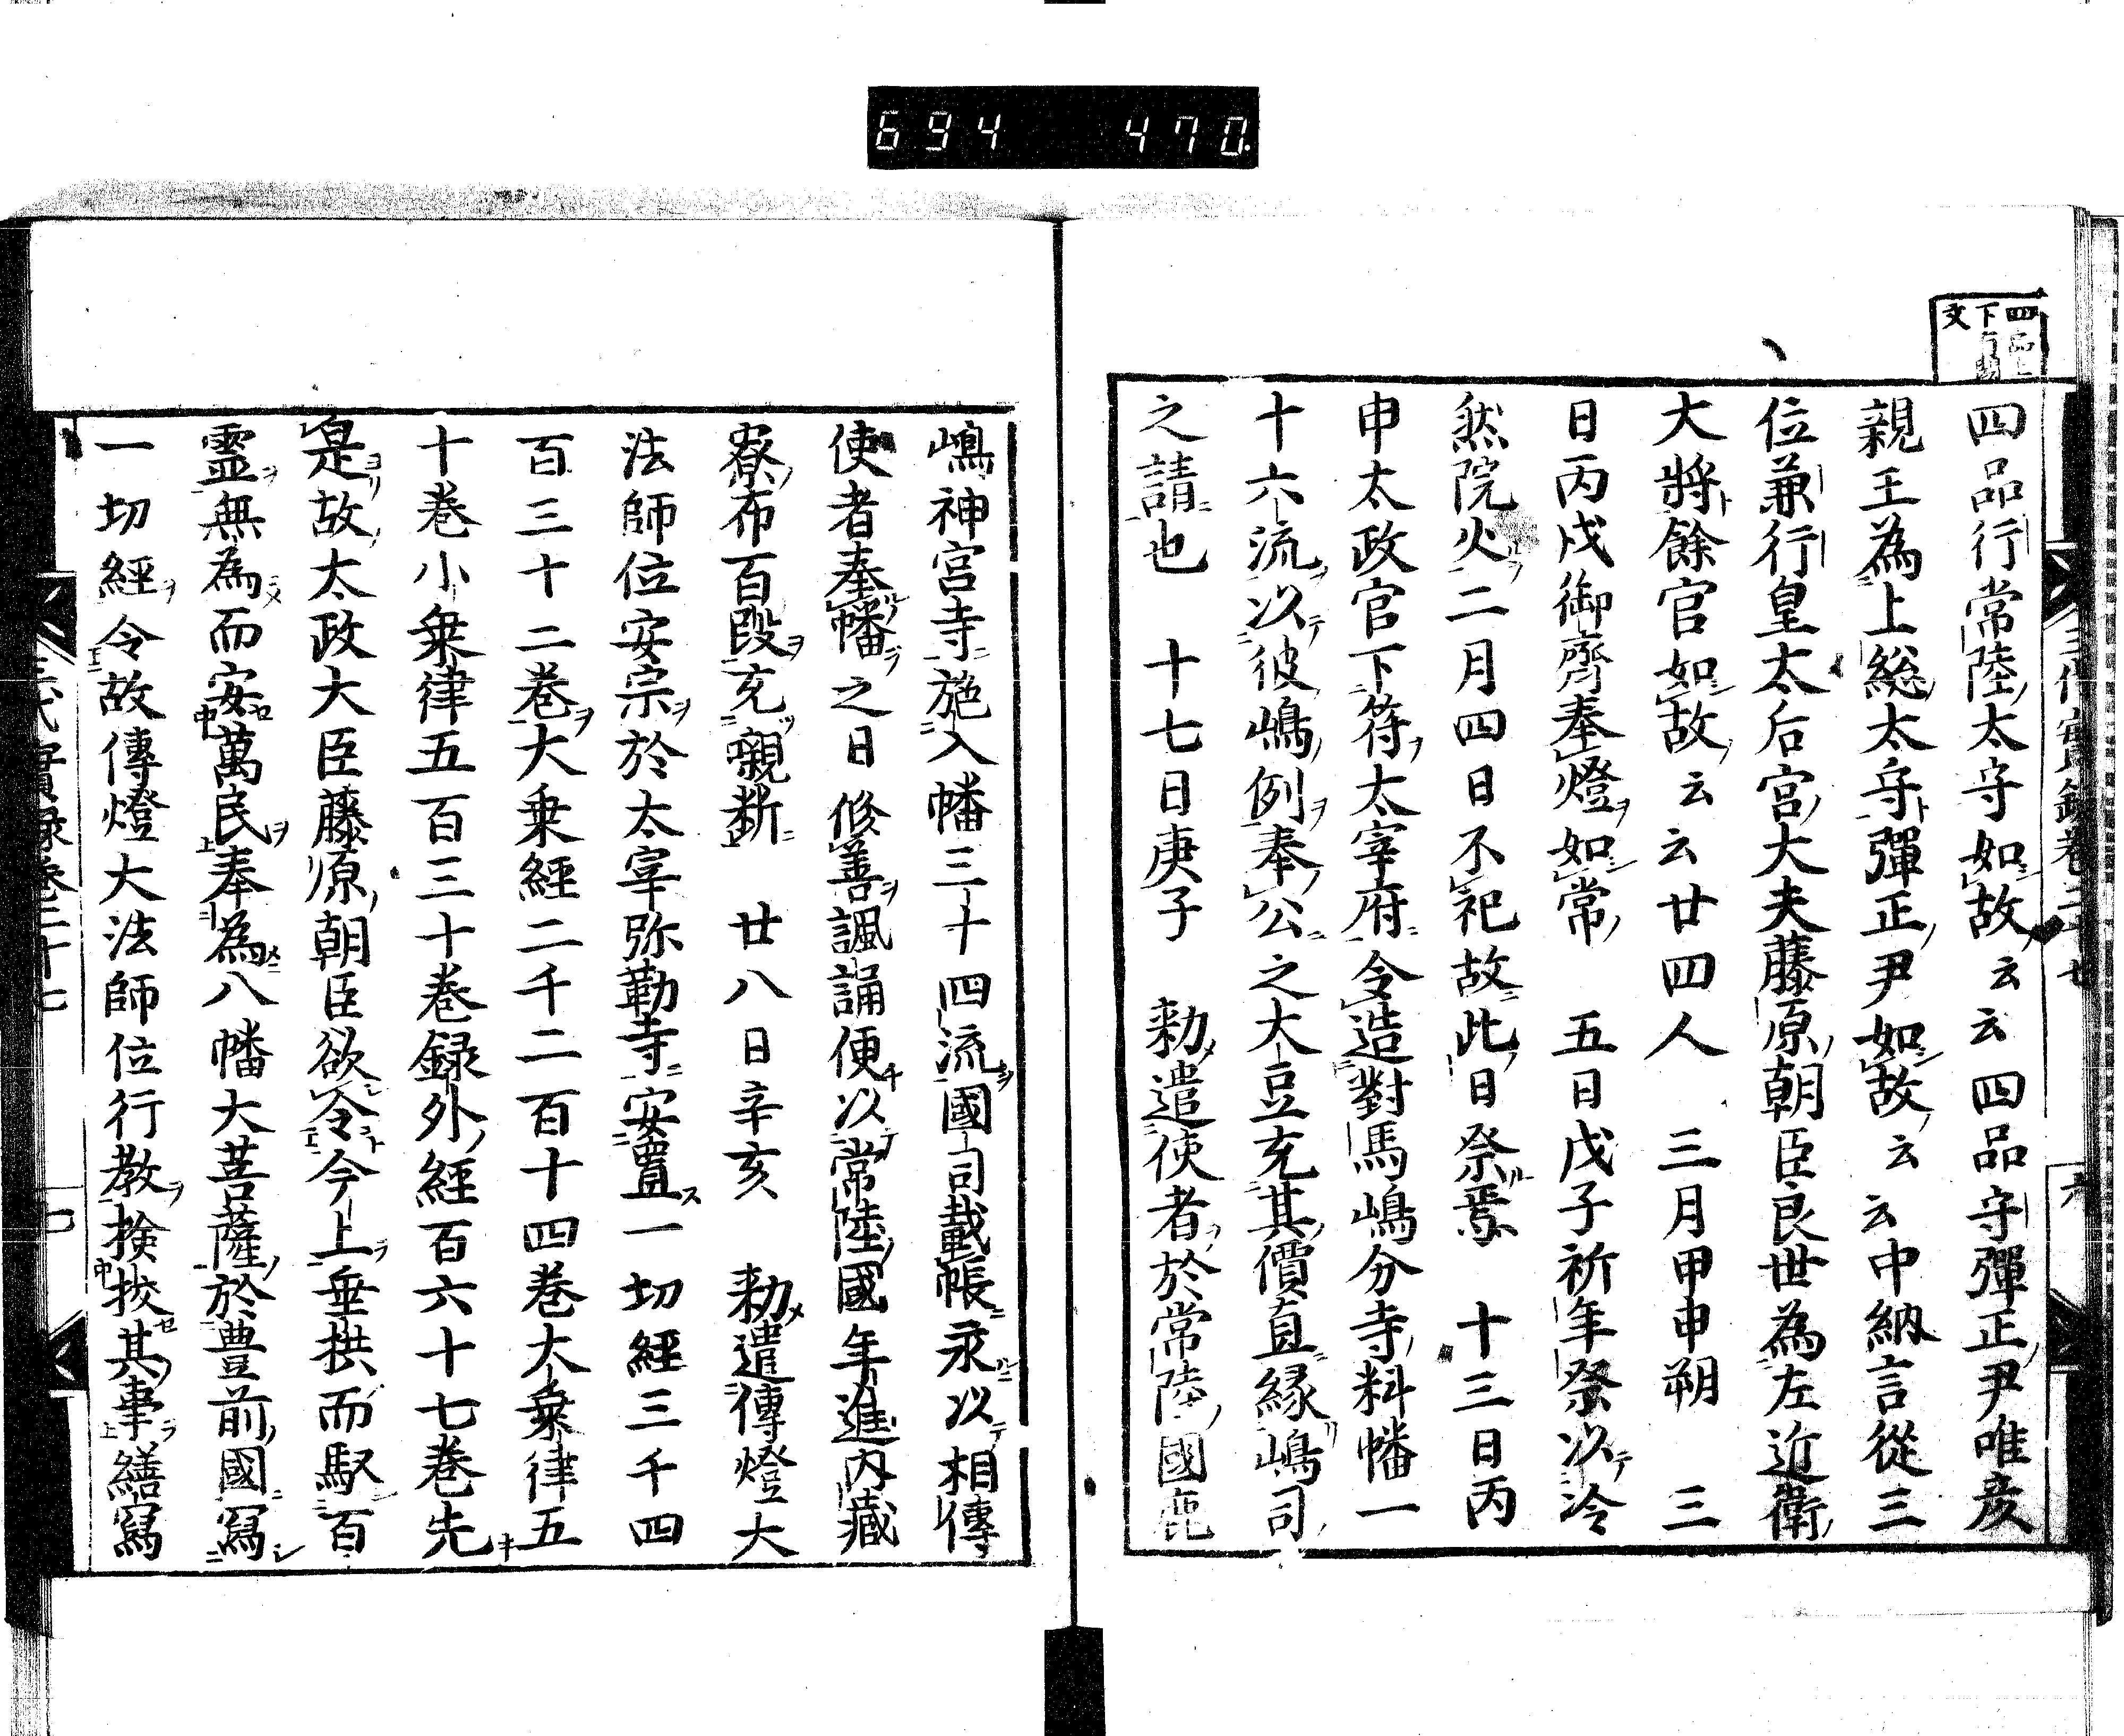 694 470.
四品上
下有闕
文
四品行常陸太守如故云云四品守彈正尹唯彥
親王為上総太守彈正尹如故云云中納言從三
位兼行皇太后宮大夫藤原朝臣良世為左近衛
大將餘官如故云云廿四人 三月甲申朔 三
日丙戌御齊奉燈如常 五日戊子祈年祭以冷
然院火二月四日不祀故此日祭焉 十三日丙
申太政官下符太宰府令造對馬嶋分寺料幡一
十六流以彼嶋例奉公之大豆充其價直緣嶋司
之請也 十七日庚子 勅遣使者於常陸國鹿
嶋神宮寺施入幡三十四流國司載帳永以相傳
使者奉幡之日修善諷誦便以常陸國年進內藏
寮布百段充嚫断 廿八日辛亥 勅遣傳燈大
法師位安宗於太宰弥勒寺安置一切經三千四
百三十二巻大乗經二千二百十四巻大乗律五
十巻小乗律五百三十巻録外經百六十七巻先
是故太政大臣藤原朝臣欲令今上垂拱而馭百
靈無為而安萬民奉為八幡大菩薩於豊前國寫
一切經令故傳燈大法師位行教撿挍其事繕寫
三代實録巻二十七